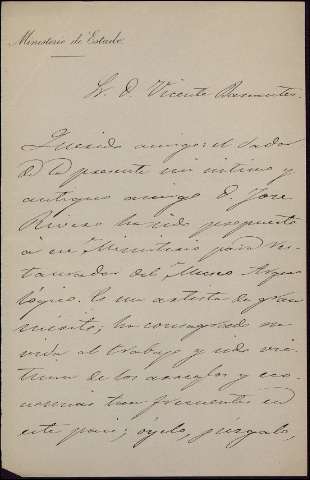 Ministerio de Estado
Sr. D. Vicente Barrantes.
Querido amigo: el dador
de la presente mi íntimo y
antiguo amigo D. José
Rivero ha sido propuesto
á ese Ministerio para res-
taurador del Museo Arqueo-
lógico. Es un artista de gran
mérito; ha consagrado su
vida al trabajo y sido víc-
tima de los arreglos y eco-
nomías tan frecuentes en
este país; óyelo, júzgalo,